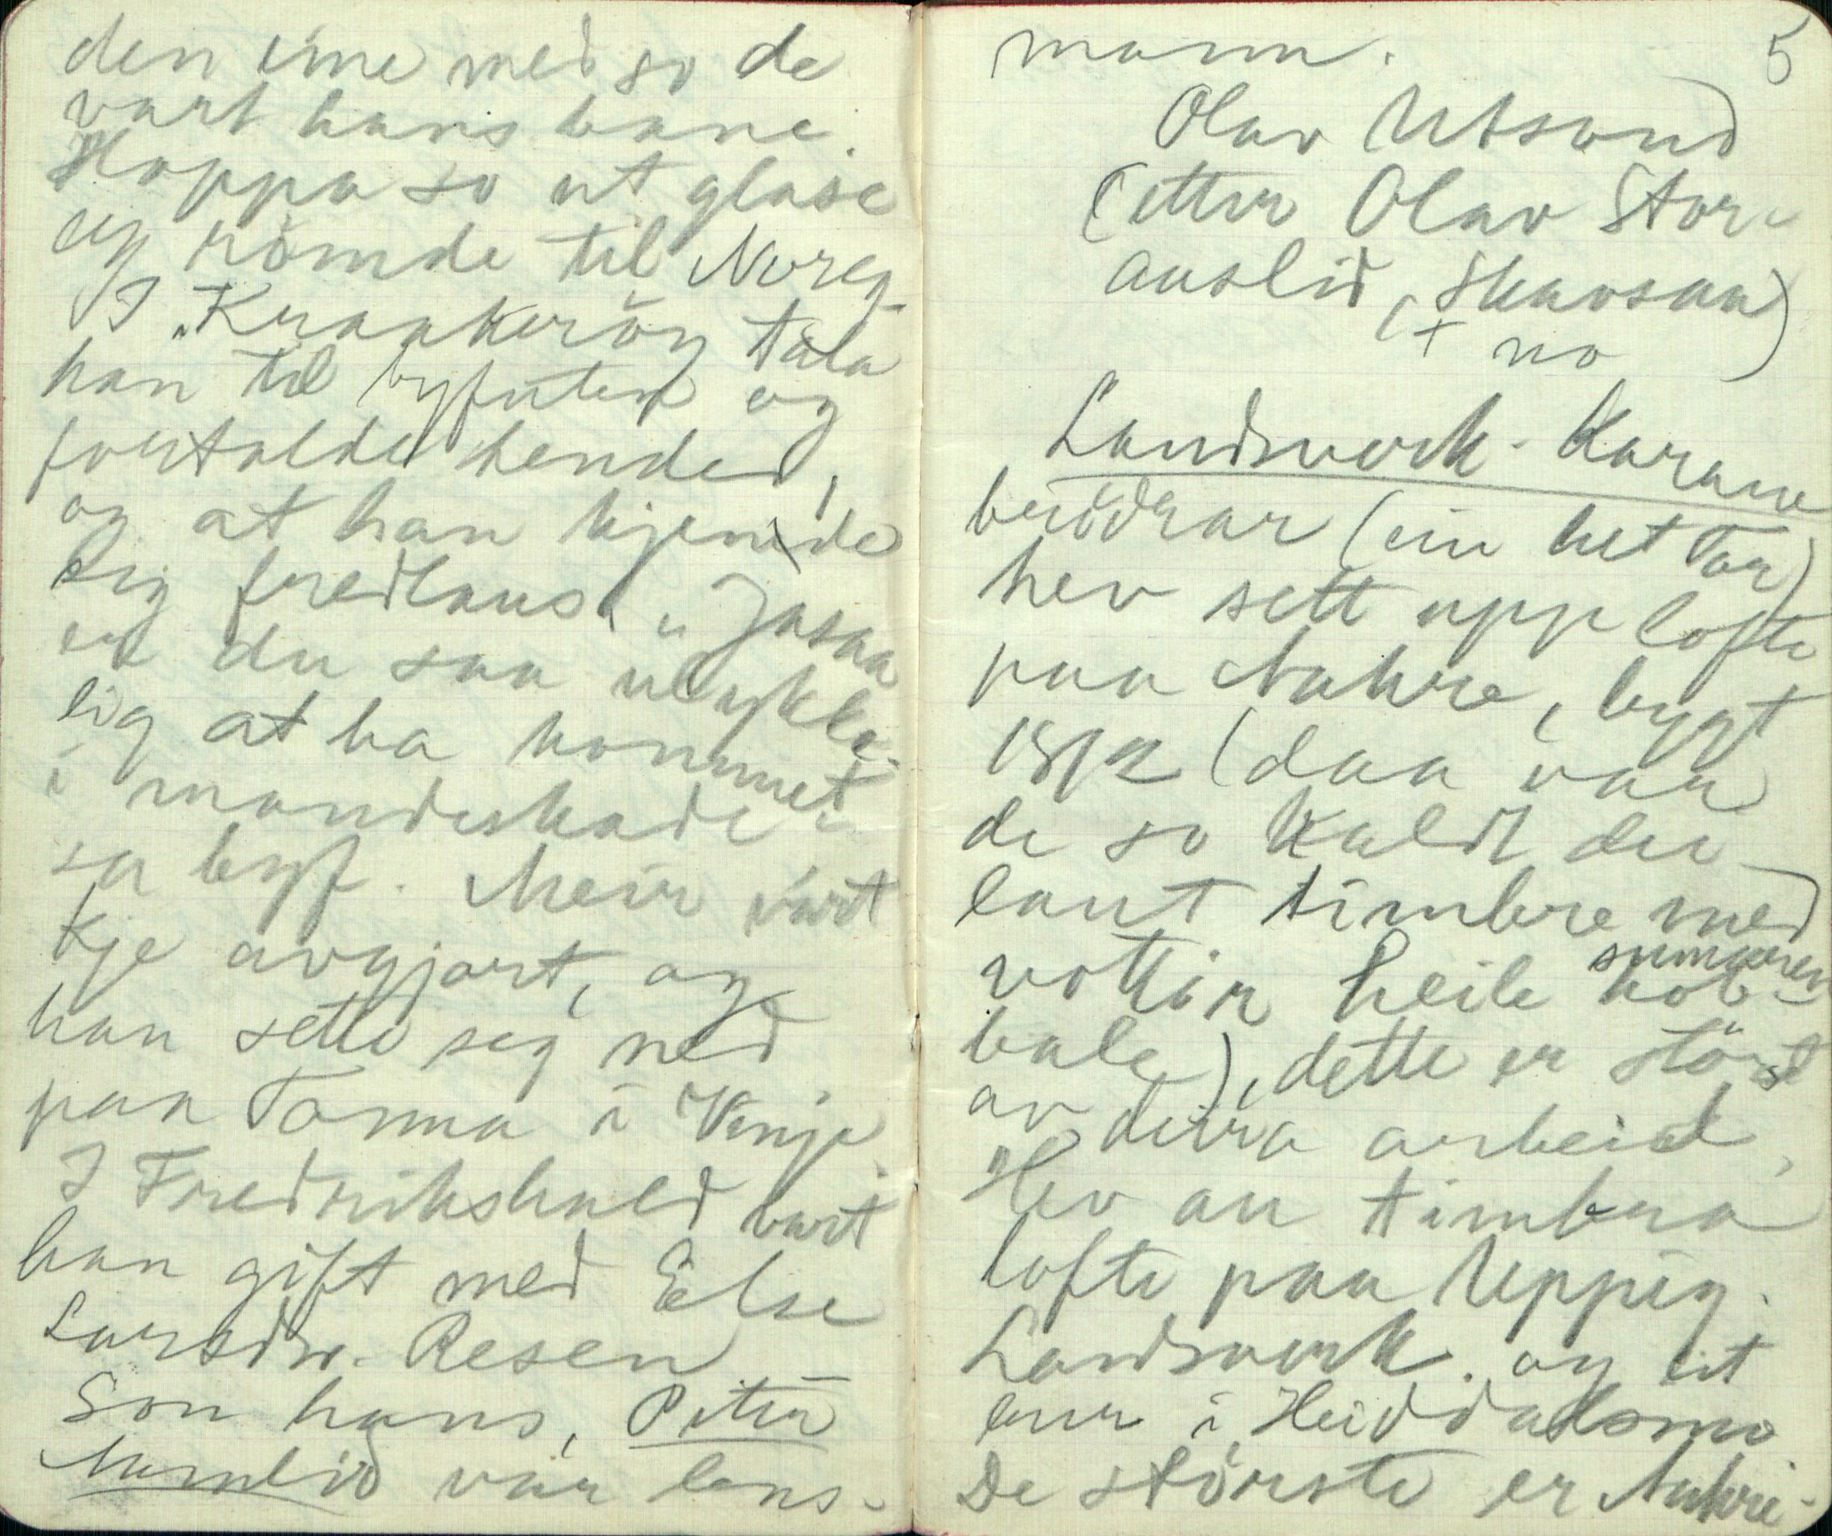 den eine med so de
vart hans bane.
Hoppa so ut glase
og römde til Noreg.
I "Kraakeröy tala
han til byfuten og
fortalde hende,
og at han kjende
sig fredlaus. "Jasaa
er du saa ulykke-
lig at ha kommet
i mandeskade"
sa byf. Meir vart
kje avgjort, og
han sette seg ned
paa Tonna i Vinje.
I Fredrikshald vart
han gift med Else
Larsdtr. Resen
Son hans, Peter
Aamlid var lens-
5
mann.
Olav Utsond
(etter Olav Stor-
auslid, Skavsaa)
+ no
Landsverk-Karane
brödrar (ein het Tor)
hev sett upp lofte
paa Nakre, bygt
1812 (daa var
de so kaldt dei
laut timbre med
vottir heile sumaren
bale), dette er störst
av deira arbeid,
Hev au timbra
lofte paa Uppig.
Landsverk. og eit
bur i Heiddalsmo
De störste er